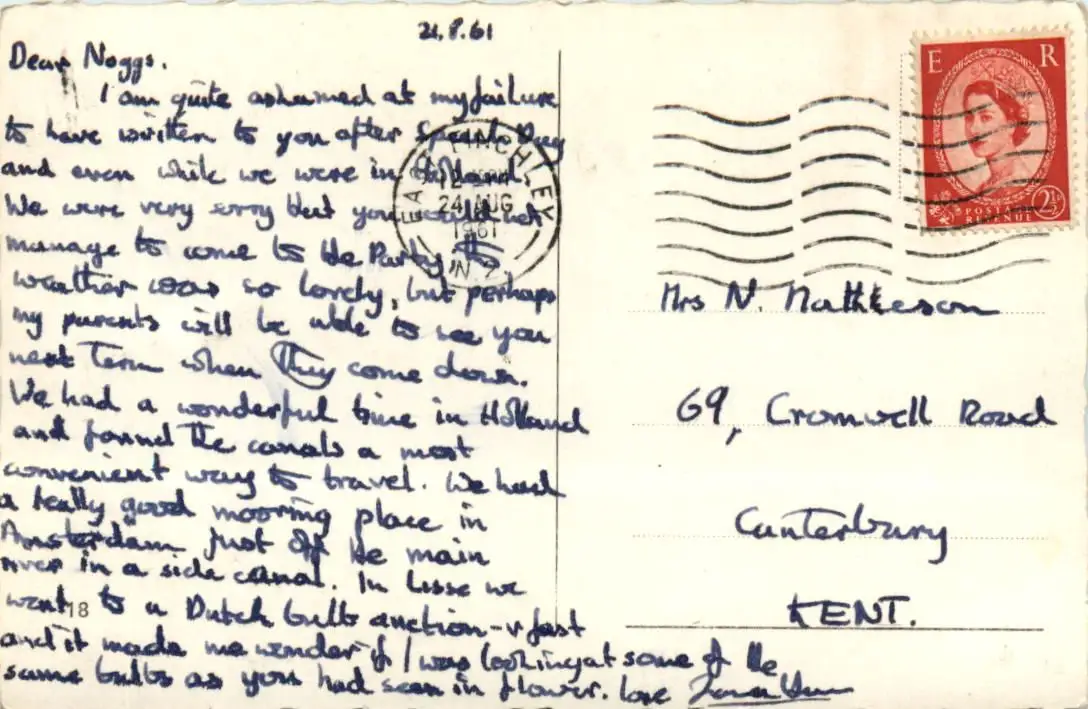 21.8.61
Dear Noggs.
I am quite ashamed at my failure
to have written to you after Speech Day
and even while we were in Holland.
We were very sorry that you could not
manage to come to the Party, the
weather was so lovely, but perhaps
my parents will be able to see you
next Term when they come down.
We had a wonderful time in Holland
and found the canals a most
convenient way to travel. We had
a really good mooring place in
Amsterdam just off the main
river in a side canal. In Lisse we
went to a Dutch bulb auction - v fast
and it made me wonder if I was looking at some of the
same bulbs as you had seen in flower. Love
18
EAST FINCHLEY
12
24 AUG
1961
N.2.
E R
POSTAGE
REVENUE
2½D
Mrs N. Mathieson
69, Cromwell Road
Canterbury
KENT.